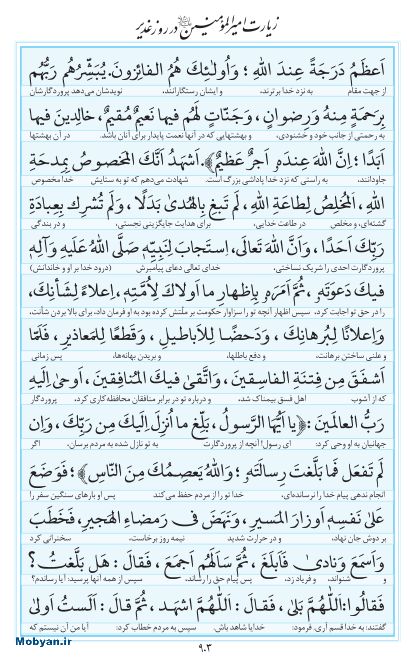 زیارت امیرالمؤمنین در روز غدیر
اَعظَمُ دَرَجَةً عِندَ اللهِ ؛ وَاُولٰئِكَ هُمُ الفائِزونَ. یُبَشِّرُهُم رَبُّهُم
از جهت مقام به نزد خدا برترند، و ایشان رستگارانند. نویدشان می‌دهد پروردگارشان
بِرَحمَةٍ مِنهُ وَرِضوانٍ ، وَجَنّاتٍ لَهُم فیها نَعیمٌ مُقیمٌ ، خالِدینَ فیها
به رحمتی از جانب خود و خشنودی، و بهشتهایی که در آنها نعمت پایدار برای آنان باشد. در آن بهشتها
اَبَدًا ؛ اِنَّ اللهَ عِندَهٗ اَجرٌ عَظیمٌ﴾. اَشهَدُ اَنَّكَ المَخصوصُ بِمِدحَةِ
جاودانند، به راستی که نزد خدا پاداشی بزرگ است. شهادت می‌دهم که تو به ستایش خدا مخصوص
اللهِ ، اَلمُخلِصُ لِطاعَةِ اللهِ ، لَم تَبغِ بِالهُدىٰ بَدَلًا ، وَلَم تُشرِك بِعِبادَةِ
گشته‌ای، و مخلص در طاعت خدایی، برای هدایت جایگزینی نجستی، و در بندگی
رَبِّكَ اَحَدًا ، وَاَنَّ اللهَ تَعالىٰ، اِستَجابَ لِنَبِیِّهٖ صَلَّى اللهُ عَلَیهِ وَآلِهٖ
پروردگارت احدی را شریک نساختی، خدای تعالی دعای پیامبرش (درود خدا بر او و خاندانش)
فیكَ دَعوَتَهٗ ، ثُمَّ اَمَرَهٗ بِاِظهارِ ما اَولاكَ لِاُمَّتِهٖ ، اِعلاءً لِشَأنِكَ،
را در حق تو اجابت کرد. سپس اظهار آنچه تو را سزاوار حکومت بر ملّتش کرده بود به او فرمان داد، برای بالا بردن شأنت،
وَاِعلانًا لِبُرهانِكَ ، وَدَحضًا لِلاَباطیلِ ، وَقَطعًا لِلمَعاذیرِ ، فَلَمّا
و علنی ساختن برهانت، و دفع باطلها، و بریدن بهانه‌ها، پس زمانی
اَشفَقَ مِن فِتنَةِ الفاسِقینَ ، وَاتَّقىٰ فیكَ المُنافِقینَ ، اَوحىٰ اِلَیهِ
که از آشوب اهل فسق بیمناک شد، و درباره تو در برابر منافقان محافظه‌کاری کرد، پروردگار
رَبُّ العالَمینَ : ﴿یا اَیُّهَا الرَّسولُ، بَلِّغ ما اُنزِلَ اِلَیكَ مِن رَبِّكَ ، وَاِن
جهانیان به او وحی کرد: ای رسول! آنچه از پروردگارت به تو نازل شده به مردم برسان. اگر
لَم تَفعَل فَما بَلَّغتَ رِسالَتَهٗ ؛ وَاللهُ یَعصِمُكَ مِنَ النّاسِ﴾ ؛ فَوَضَعَ
انجام ندهی پیام خدا را نرسانده‌ای، خدا تو را از مردم حفظ می‌کند پس او بارهای سنگین سفر را
عَلىٰ نَفسِهٖ اَوزارَ المَسیرِ ، وَنَهَضَ فی رَمضاءِ الهَجیرِ، فَخَطَبَ
بر دوش جان نهاد، و در حرارت شدید نیمه روز برخاست، سخنرانی کرد
وَاَسمَعَ وَنادىٰ فَاَبلَغَ ، ثُمَّ سَاَلَهُم اَجمَعَ ، فَقالَ : هَل بَلَّغتُ ؟
و شنواند، و فریاد زد، پس پیام حق را رساند، سپس از همه آنها پرسید: آیا رساندم؟
فَقالُوا: اَللّهُمَّ بَلىٰ ، فَقالَ : اَللّهُمَّ اشهَد ، ثُمَّ قالَ : اَلَستُ اَولىٰ
گفتند: به خدا قسم آری. فرمود: خدایا شاهد باش. سپس به مردم خطاب کرد: آیا من آن نیستم که
Mobyan.ir
۹۰۳